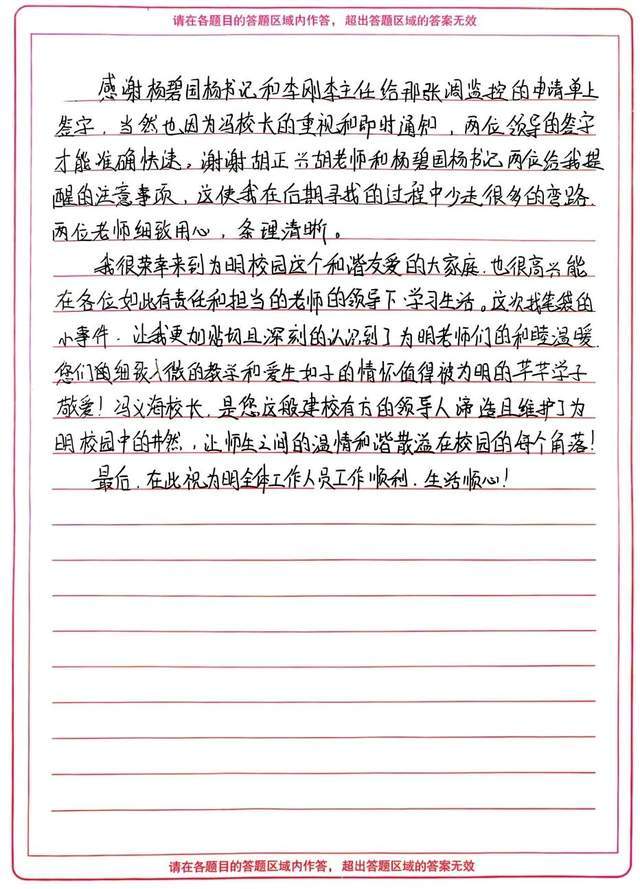 请在各题目的答题区域内作答，超出答题区域的答案无效
感谢杨碧园杨书记和李刚李主任给那张调监控的申请单上
签字，当然也因为冯校长的重视和即时通知，两位领导的签字
才能准确快速，谢谢胡正兴胡老师和杨碧园杨书记两位给我提
醒的注意事项，这使我在后期寻找的过程中少走很多的弯路，
两位老师细致用心，条理清晰。
我很荣幸来到为明校园这个和谐友爱的大家庭，也很高兴能
在各位如此有责任和担当的老师的领导下学习生活。这次找笔袋的
小事件，让我更加贴切且深刻的认识到了为明老师们的和睦温暖，
您们的细致入微的教学和爱生如子的情怀值得被为明的莘莘学子
敬爱！冯义海校长，是您这般建校有方的领导人缔造且维护了为
明校园中的井然，让师生之间的温情和谐散溢在校园的每个角落！
最后，在此祝为明全体工作人员工作顺利，生活顺心！
请在各题目的答题区域内作答，超出答题区域的答案无效